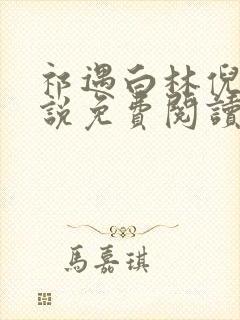 祁遇白林倪
說免費閱讀
馬嘉琪